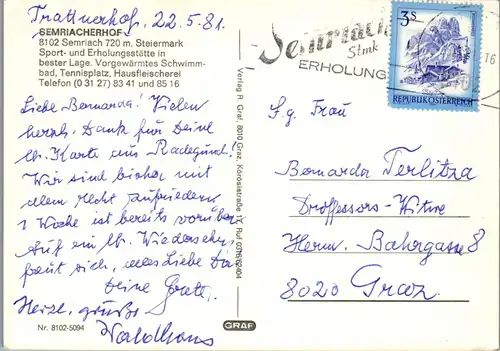 Trattnerhof, 22.5.81.
SEMRIACHERHOF
8102 Semriach 720 m, Steiermark
Sport- und Erholungsstätte in
bester Lage. Vorgewärmtes Schwimm-
bad, Tennisplatz, Hausfleischerei
Telefon (0 31 27) 83 41 und 85 16
Liebe Bernarda! Vielen
herzl. Dank für Deine
lb. Karte aus Radegund!
Wir sind bisher mit
allem recht zufrieden
1 Woche ist bereits vorüber
Auf ein lb. Wiedersehn
freut sich, alles Liebe
Deine Grete.
Herzl. Grüße
Waldhans
Nr. 8102-5094
Verlag R. Graf, 8010 Graz
GRAF
Semriach
Stmk
ERHOLUNG
3 S
REPUBLIK ÖSTERREICH
16
S.g. Frau
Bernarda Terlitza
Professors-Witwe
Herm. Bahrgasse 8
8020 Graz